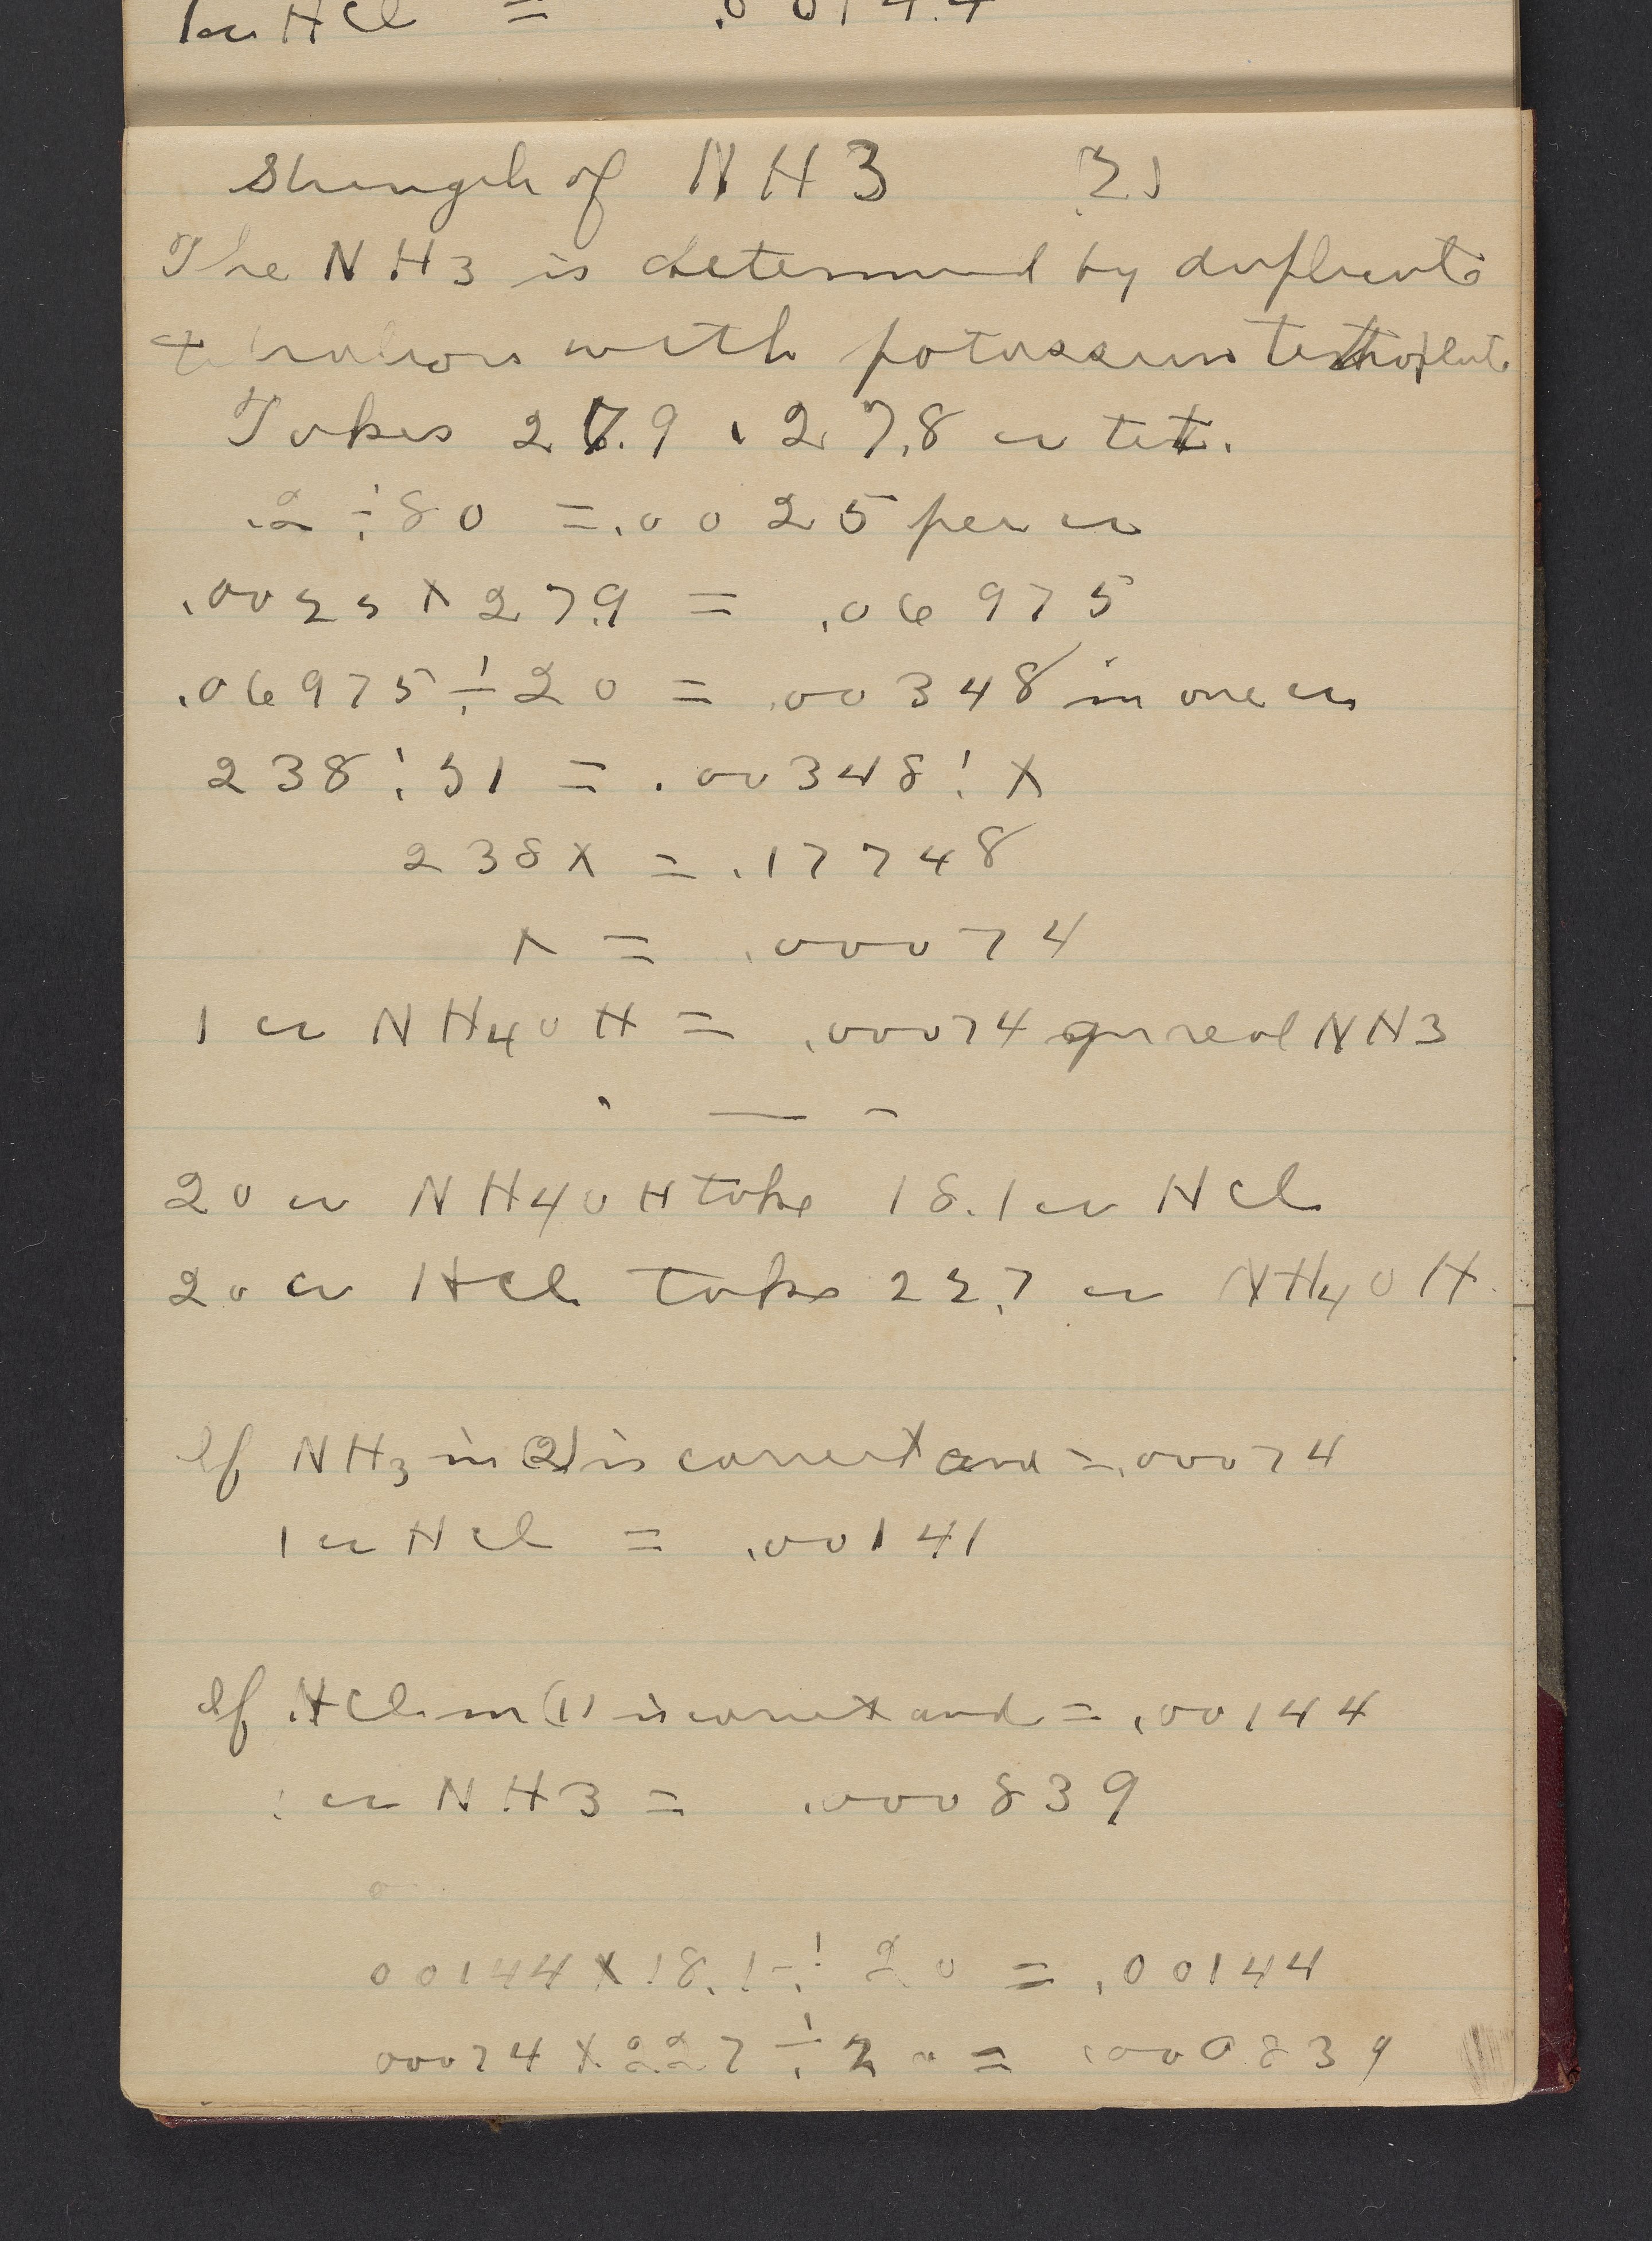 1 cc HCl = .00144
Strength of NH3 2)
The NH3 is determined by duplicate
titrations with potassium
Takes 27.9 , 27.8 cc tet.
.2 ÷ 80 = .0025 per cc
.0025 x 27.9 = .06975
.06975 ÷ 20 = .00348 in one cc
238 : 51 = .00348 : x
238x = .17748
x = .00074
1 cc NH4OH = .00074 gm real NH3
20 cc NH4OH take 18.1 cc HCl
20 cc HCl take 22.7 cc NH4OH
If NH3 in (2) is correct and = .00074
1 cc HCl = .00141
If HCl in (1) is correct and = .00144
1 cc NH3 = .000839
00144 x 18.1 ÷ 20 = .00144
00074 x 227 ÷ 20 = .000839